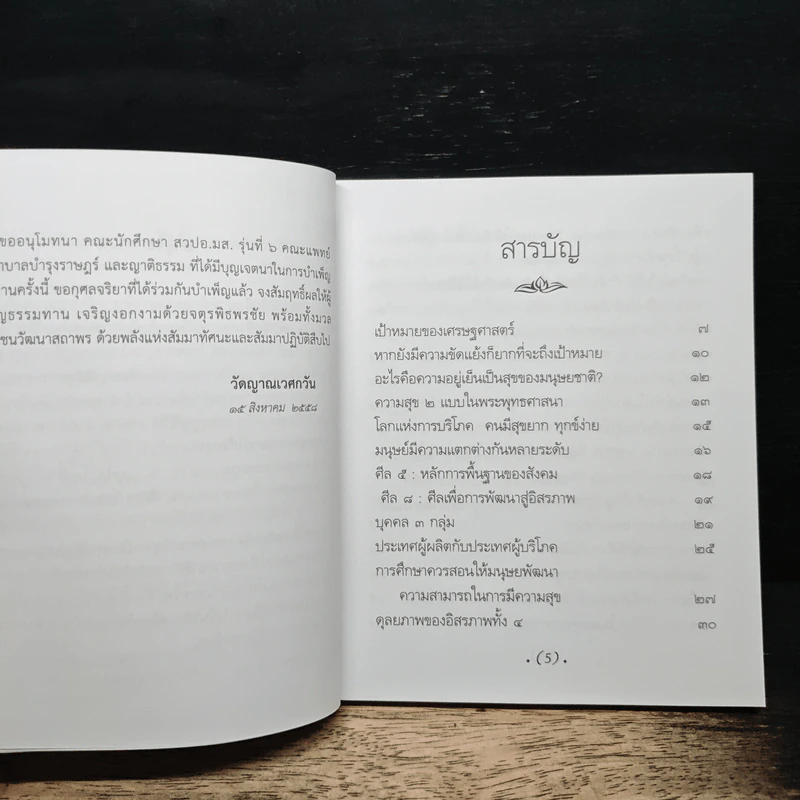 ขออนุโมทนา คณะนักศึกษา สวปอ.มส. รุ่นที่ ๖ คณะแพทย์
าบาลบำรุงราษฎร์ และญาติธรรม ที่ได้มีบุญเจตนาในการบำเพ็ญ
านครั้งนี้ ขอกุศลจริยาที่ได้ร่วมกันบำเพ็ญแล้ว จงสัมฤทธิ์ผลให้ผู้
ญธรรมทาน เจริญงอกงามด้วยจตุรพิธพรชัย พร้อมทั้งมวล
ชนวัฒนาสถาพร ด้วยพลังแห่งสัมมาทัศนะและสัมมาปฏิบัติสืบไป
วัดญาณเวศกวัน
๑๕ สิงหาคม ๒๕๕๘
สารบัญ
เป้าหมายของเศรษฐศาสตร์ ๗
หากยังมีความขัดแย้งก็ยากที่จะถึงเป้าหมาย ๑๐
อะไรคือความอยู่เย็นเป็นสุขของมนุษยชาติ? ๑๒
ความสุข ๒ แบบในพระพุทธศาสนา ๑๓
โลกแห่งการบริโภค คนมีสุขยาก ทุกข์ง่าย ๑๕
มนุษย์มีความแตกต่างกันหลายระดับ ๑๖
ศีล ๕ : หลักการพื้นฐานของสังคม ๑๘
ศีล ๘ : ศีลเพื่อการพัฒนาสู่อิสรภาพ ๑๙
บุคคล ๓ กลุ่ม ๒๑
ประเทศผู้ผลิตกับประเทศผู้บริโภค ๒๕
การศึกษาควรสอนให้มนุษย์พัฒนา
ความสามารถในการมีความสุข ๒๗
ดุลยภาพของอิสรภาพทั้ง ๔ ๓๐
. (5) .